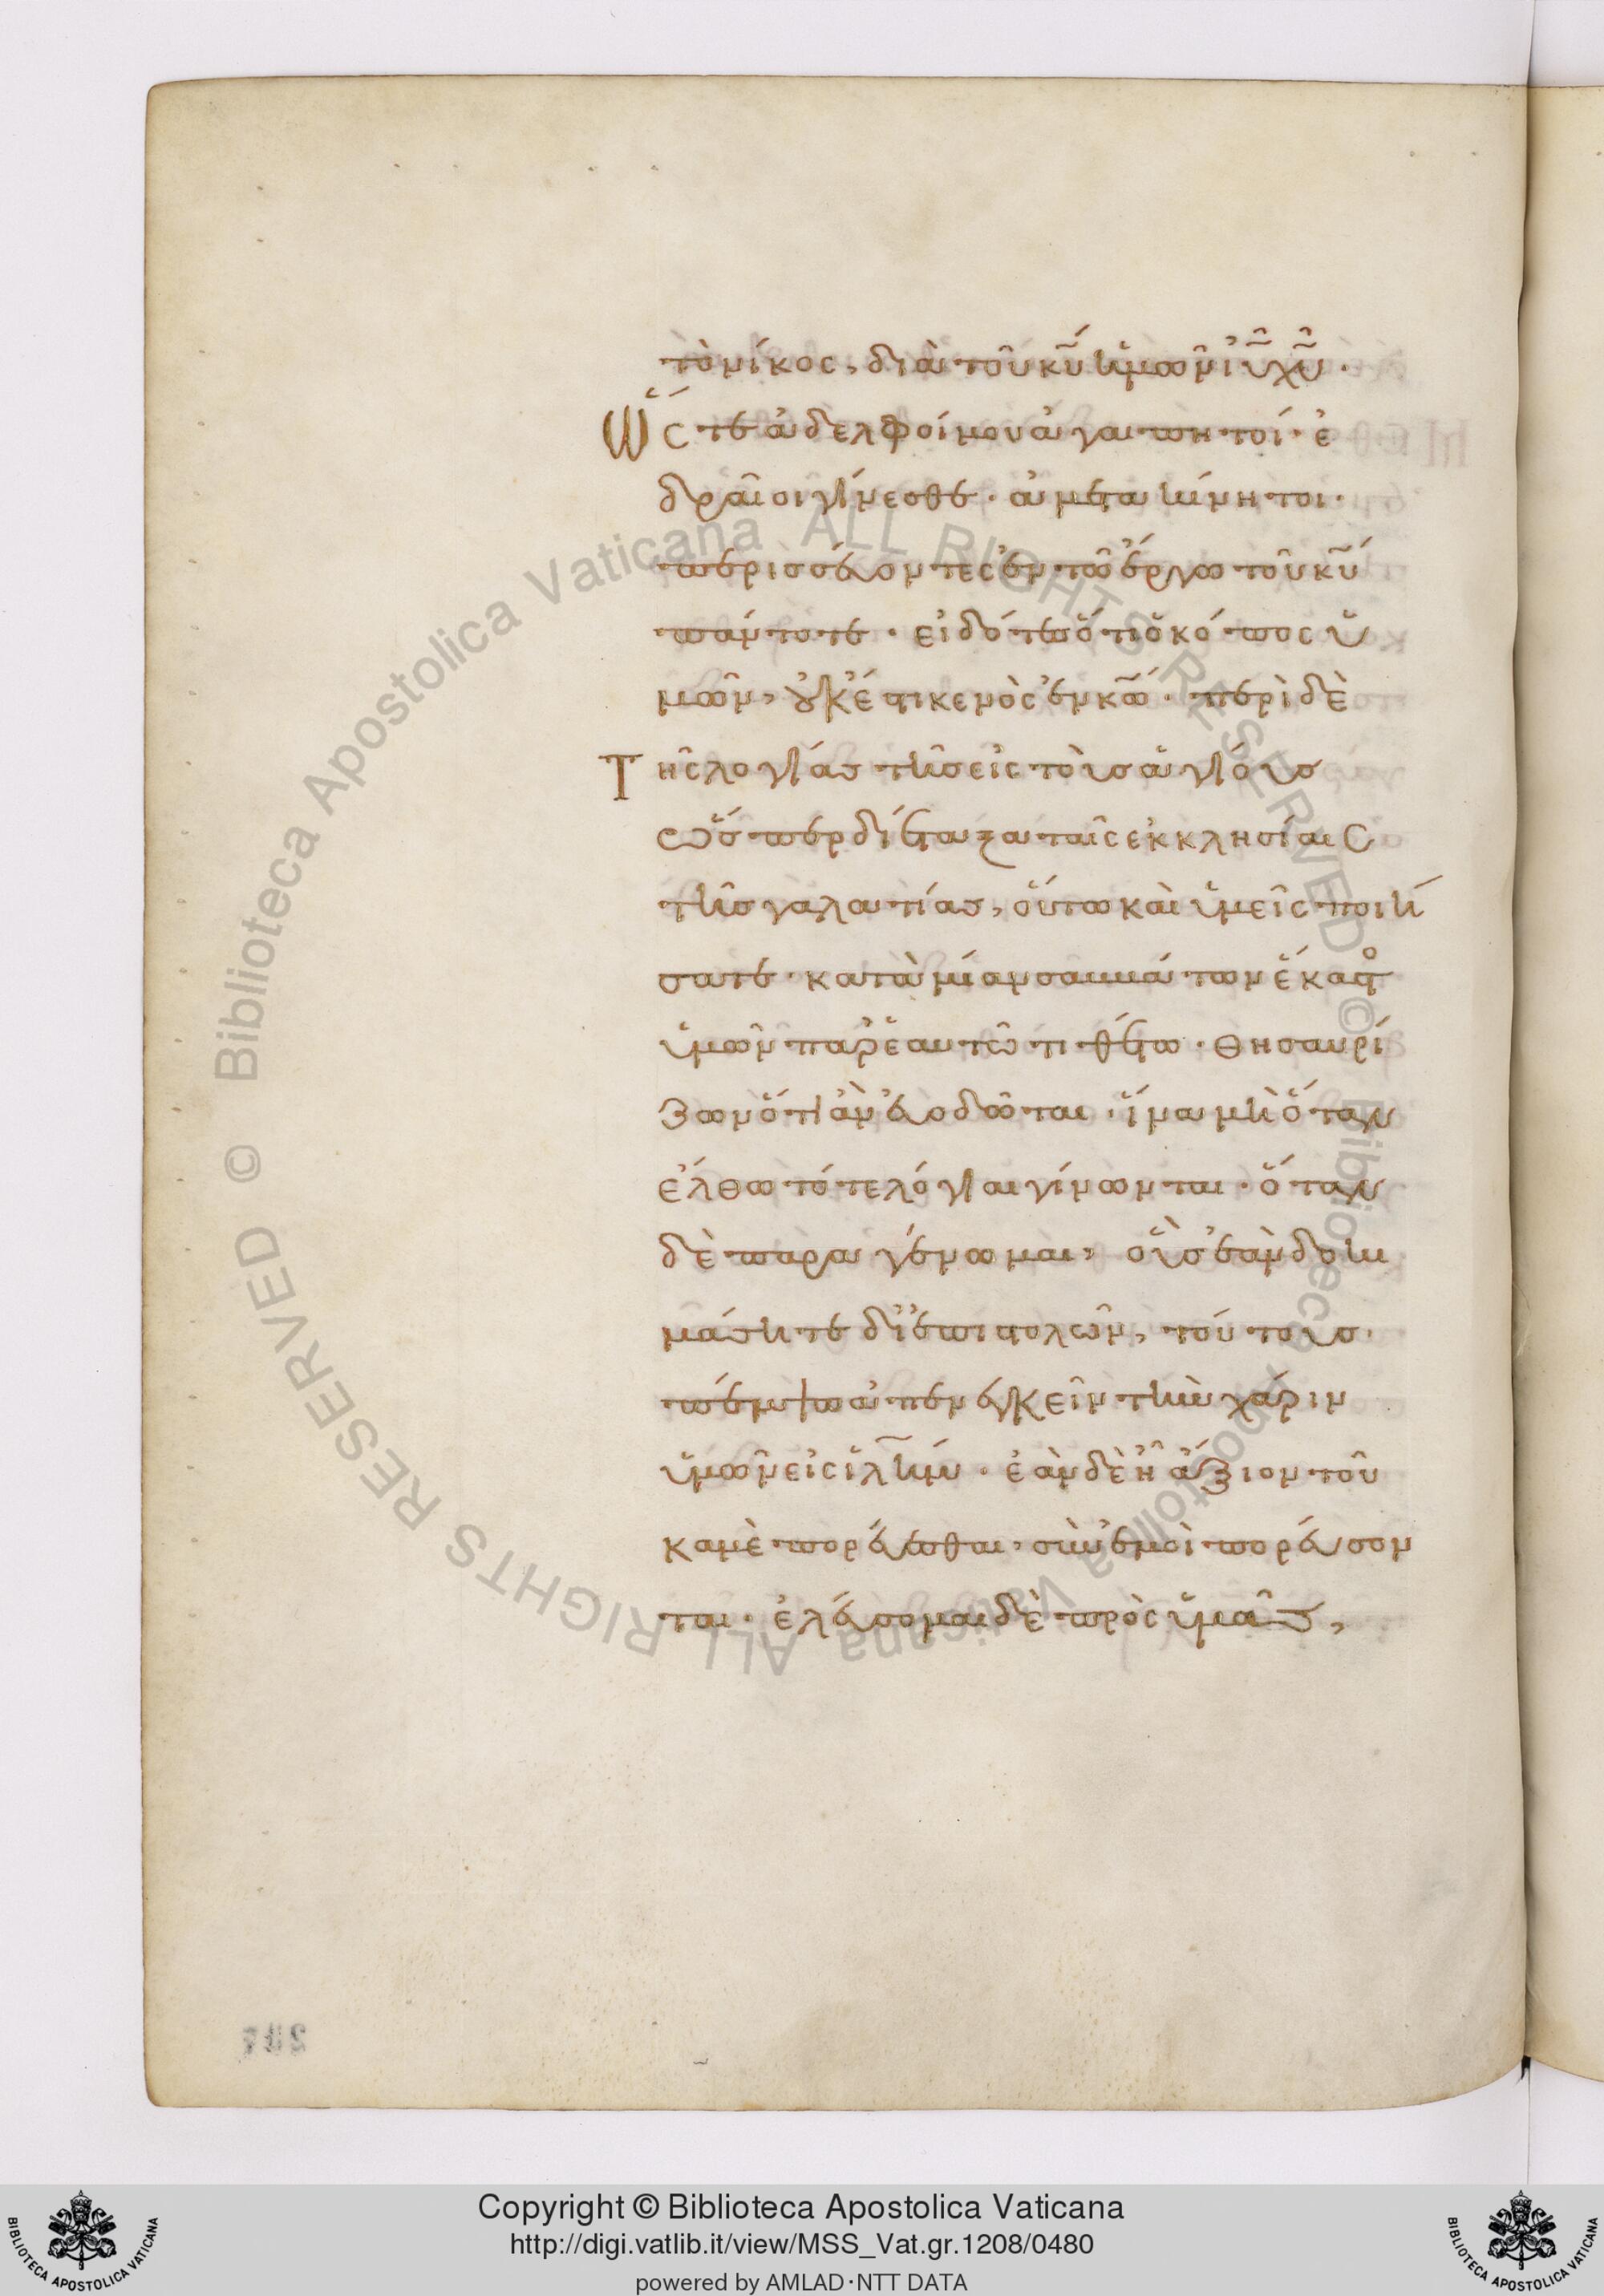 τὸ νίκος, διὰ τοῦ κ̅υ̅ ἡμῶν ἰ̅υ̅ χ̅υ̅·
Ὥστε ἀδελφοί μου ἀγαπητοί· ἑ
δραῖοι γίνεσθε· ἀμετακίνητοι·
περισσεύοντες ἐν τῶ ἔργω τοῦ κ̅υ̅
πάντοτε· εἰδότες ὅτι ὁ κόπος ὑ
μῶν, οὐκ ἔστι κενὸς ἐν κ̅ω̅· περὶ δὲ
Τῆς λογίας τῆς εἰς τοὺς ἁγίους
ὥσπερ διέταξα ταῖς ἐκκλησίαις
τῆς γαλατίας, οὕτω καὶ ὑμεῖς ποιή
σατε· κατὰ μίαν σαββάτων ἕκαστο
ὑμῶν παρ' ἑαυτῶ τιθέτω· θησαυρί
ζων ὅτι ἂν εὐοδῶται· ἵνα μὴ ὅταν
ἔλθω τότε λόγιαι γίνωνται· ὅταν
δὲ παραγένωμαι, οὓς ἐὰν δοκι
μάσητε δι' ἐπιστολῶν, τούτους
πέμψω ἀπενεγκεῖν τὴν χάριν
ὑμῶν εἰς ἱ̅λ̅η̅μ̅· ἐὰν δὲ ἦ ἄξιον τοῦ
καμὲ πορεύεσθαι, σὺν ἐμοὶ πορεύσον
ται· ἐλεύσομαι δὲ πρὸς ὑμᾶς,
247
Biblioteca Apostolica Vaticana ALL RIGHTS RESERVED © Biblioteca Apostolica Vaticana ALL RIGHTS RESERVED ©
Copyright © Biblioteca Apostolica Vaticana
http://digi.vatlib.it/view/MSS_Vat.gr.1208/0480
powered by AMLAD·NTT DATA
BIBLIOTECA APOSTOLICA VATICANA
BIBLIOTECA APOSTOLICA VATICANA